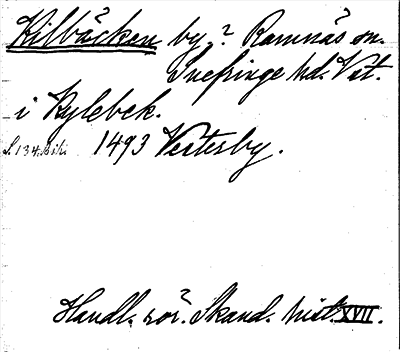 Kilbäcken by? Ramnäs sn.
Snefringe hd. Vst.
i Kylebek.
S. 134. 1493 Vestersby.
Handl. rör. Skand. hist. XVII.